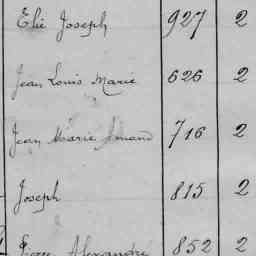 Elie Joseph 927 2
Jean Louis Marie 626 2
Jean Marie Amand 716 2
Joseph 815 2
Pierre Alexandre 852 2